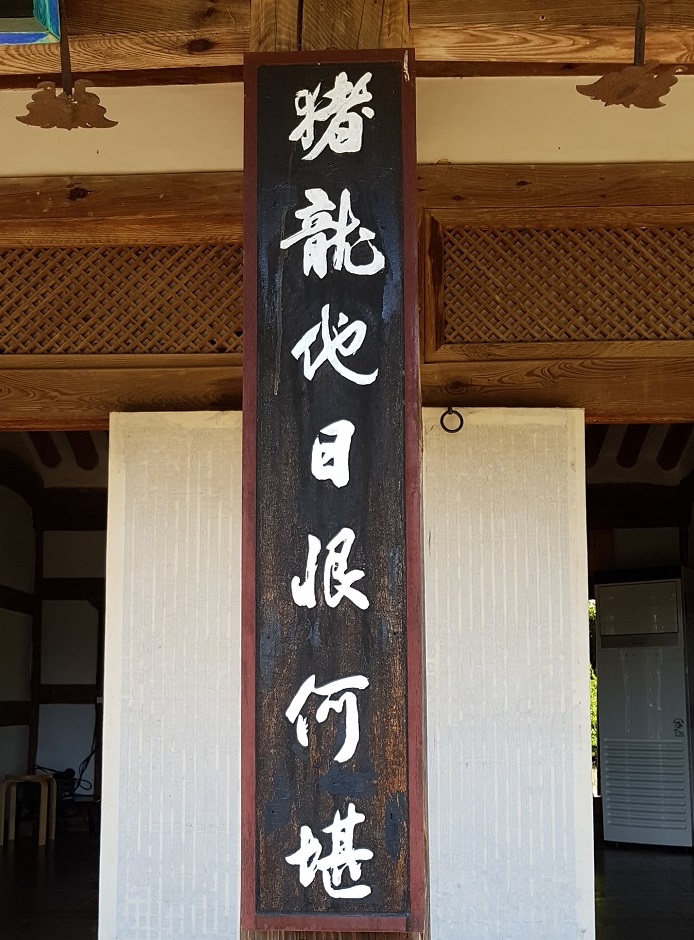 猪龍他日恨何堪